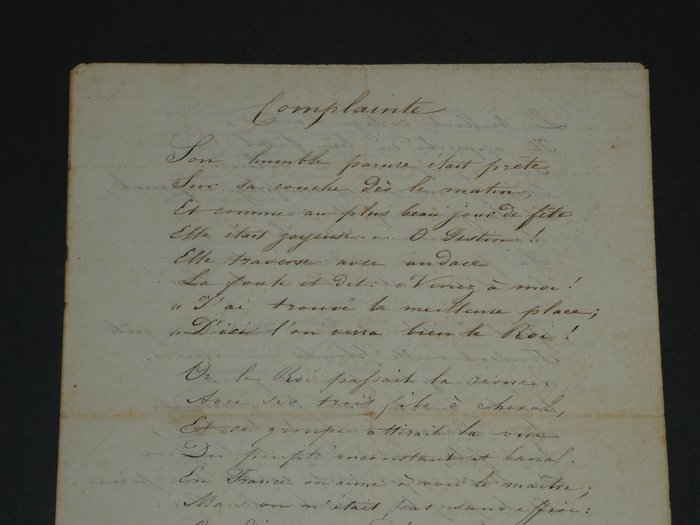 Complainte
Son humble parure était prête
Sur sa couche dès le matin,
Et comme au plus beau jour de fête,
Elle était joyeuse.... O Destin !
Elle traverse avec audace
La foule et dit: « Venez à moi !
« J'ai trouvé la meilleure place;
« D'ici l'on verra bien le Roi !
Or le Roi passait la revue,
Avec ses trois fils à cheval,
Et ce groupe attirait la vue
Du peuple inconstant et banal.
En France on aime à voir le maître;
Mais on n'était pas sans effroi: